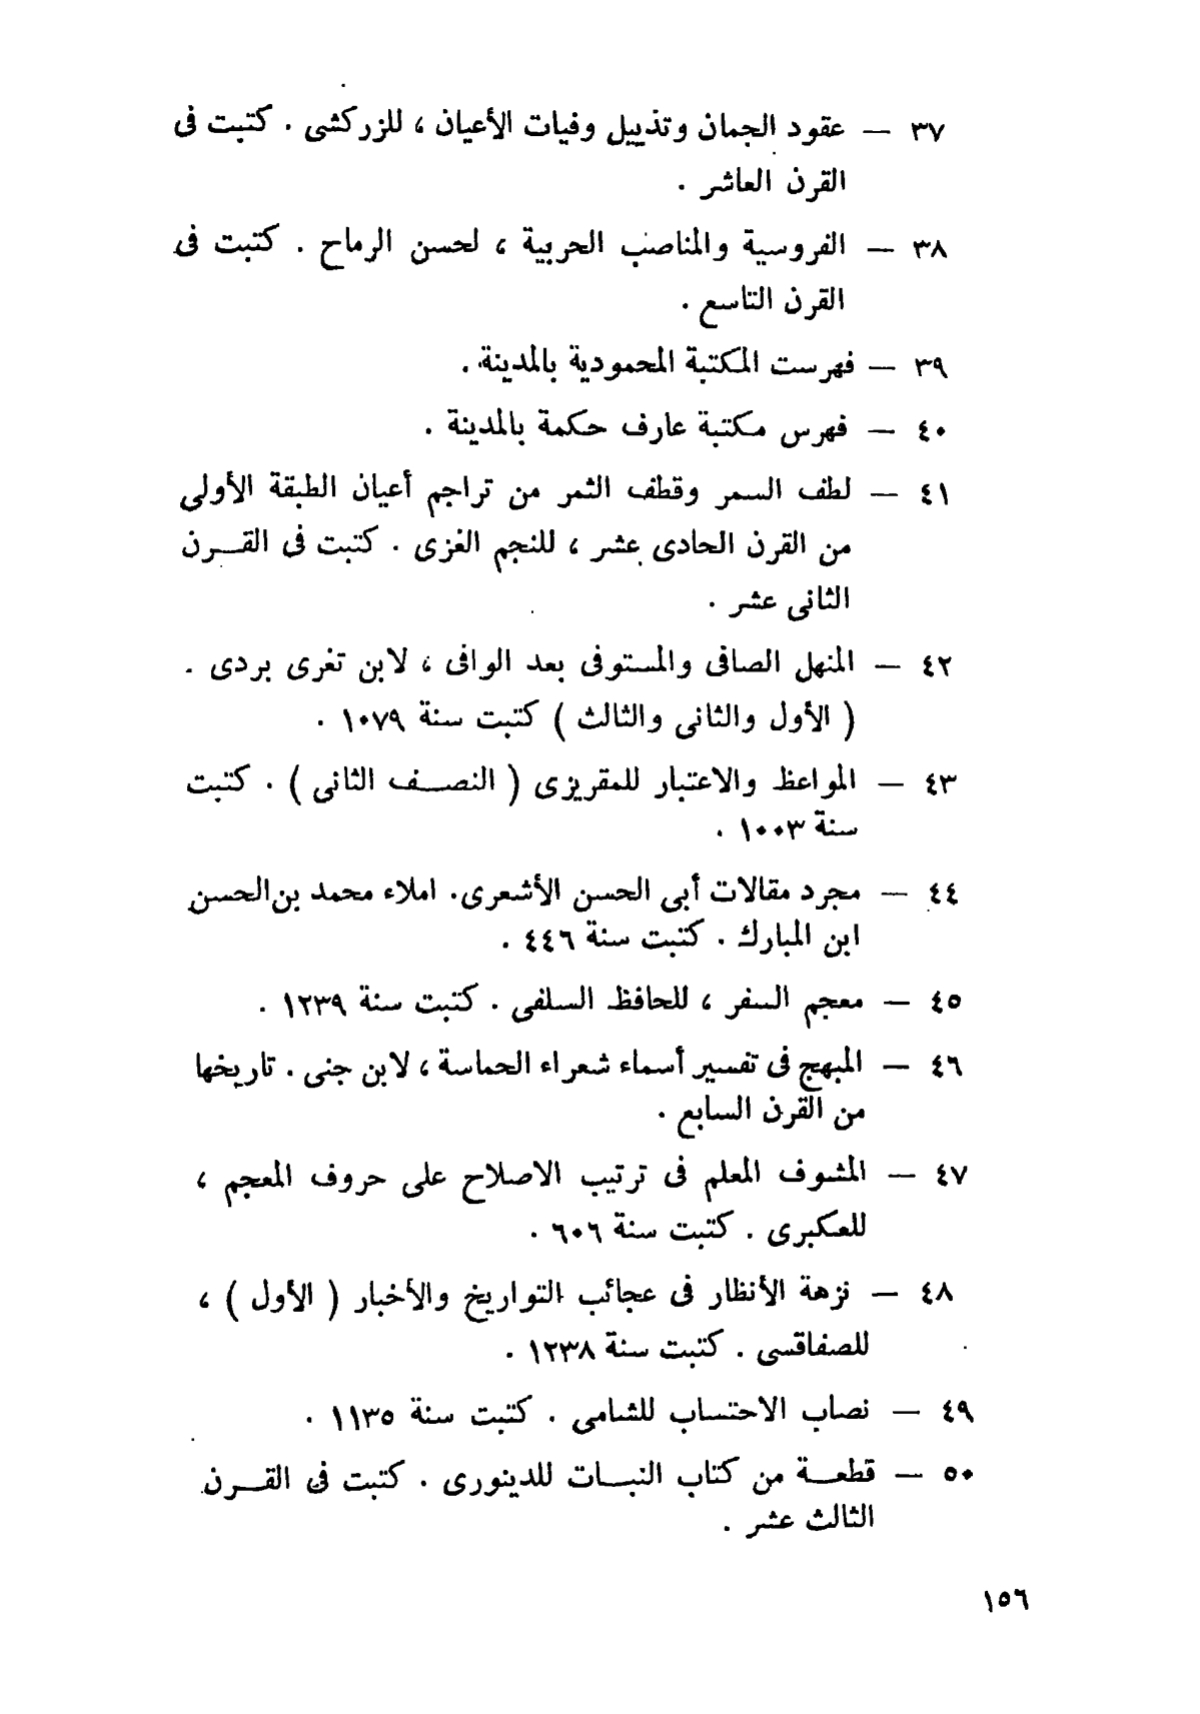 ٣٧ — عقود الجمان وتذييل وفيات الأعيان ، للزركشى . كتبت فى
القرن العاشر .
٣٨ — الفروسية والمناصب الحربية ، لحسن الرماح . كتبت فى
القرن التاسع .
٣٩ — فهرست المكتبة المحمودية بالمدينة .
٤٠ — فهرس مكتبة عارف حكمة بالمدينة .
٤١ — لطف السمر وقطف الثمر من تراجم أعيان الطبقة الأولى
من القرن الحادى عشر ، للنجم الغزى . كتبت فى القـــرن
الثانى عشر .
٤٢ — المنهل الصافى والمستوفى بعد الوافى ، لابن تغرى بردى .
( الأول والثانى والثالث ) كتبت سنة ١٠٧٩ .
٤٣ — المواعظ والاعتبار للمقريزى ( النصــف الثانى ) . كتبت
سنة ١٠٠٣ .
٤٤ — مجرد مقالات أبى الحسن الأشعرى . املاء محمد بن الحسن
ابن المبارك . كتبت سنة ٤٤٦ .
٤٥ — معجم السفر ، للحافظ السلفى . كتبت سنة ١٢٣٩ .
٤٦ — المبهج فى تفسير أسماء شعراء الحماسة ، لابن جنى . تاريخها
من القرن السابع .
٤٧ — المشوف المعلم فى ترتيب الاصلاح على حروف المعجم ،
للعكبرى . كتبت سنة ٦٠٦ .
٤٨ — نزهة الأنظار فى عجائب التواريخ والأخبار ( الأول ) ،
للصفاقسى . كتبت سنة ١٢٣٨ .
٤٩ — نصاب الاحتساب للشامى . كتبت سنة ١١٣٥ .
٥٠ — قطعــة من كتاب النبــات للدينورى . كتبت فى القـــرن
الثالث عشر .
١٥٦